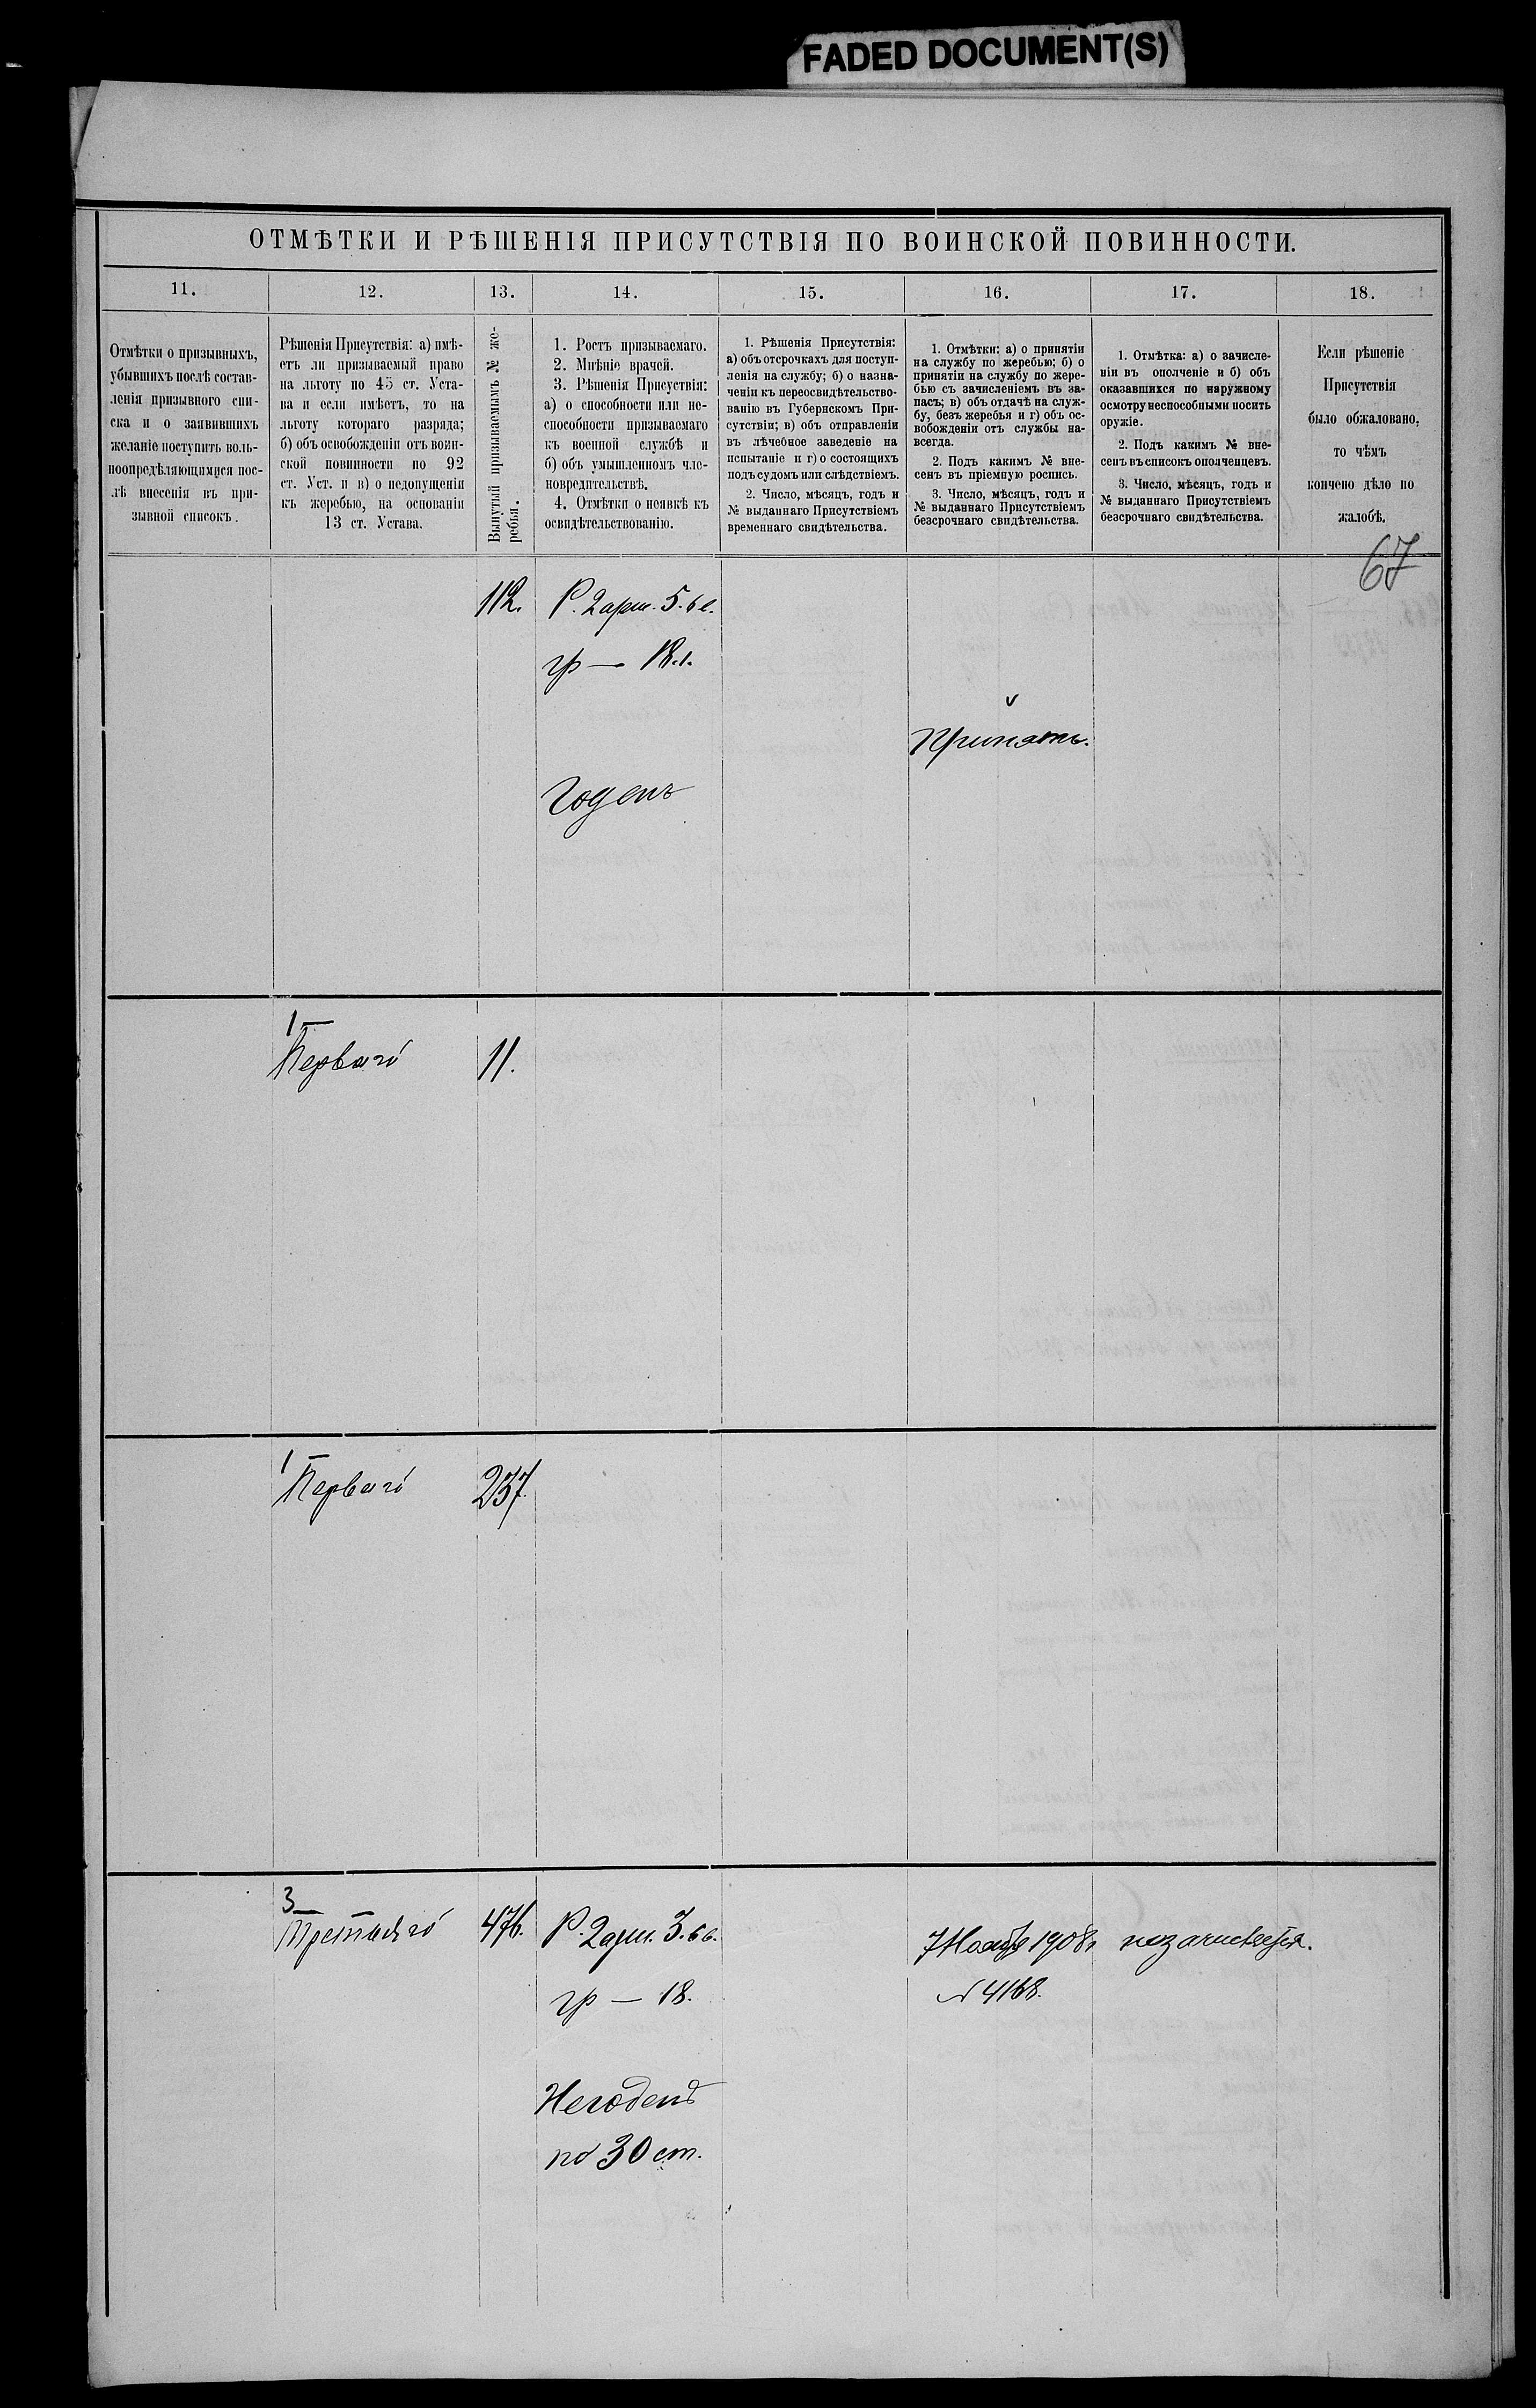 FADED DOCUMENT(S)
ОТМѢТКИ И РѢШЕНІЯ ПРИСУТСТВІЯ ПО ВОИНСКОЙ ПОВИННОСТИ.
11.
12.
13.
14.
15.
16.
17.
18.
Отмѣтки о призывныхъ,
убывшихъ послѣ состав-
ленія призывного спи-
ска и о заявившихъ
желаніе поступить воль-
ноопредѣляющимися пос-
лѣ внесенія въ при-
зывной списокъ.
Рѣшенія Присутствія: а) имѣ-
етъ ли призываемый право
на льготу по 45 ст. Уста-
ва и если имѣетъ, то на
льготу котораго разряда;
б) объ освобожденіи отъ воин-
ской повинности по 92
ст. Уст. и в) о недопущеніи
къ жеребью, на основаніи
13 ст. Устава.
Вынутый призываемымъ № же-
ребья.
1. Ростъ призываемаго.
2. Мнѣніе врачей.
3. Рѣшенія Присуствія:
а) о способности или не-
способности призываемаго
къ военной службѣ и
б) объ умышленномъ чле-
новредительствѣ.
4. Отмѣтки о неявкѣ къ
освидѣтельствованію.
1. Рѣшенія Присутствія:
а) объ отсрочкахъ для поступ-
ленія на службу; б) о назна-
ченіи къ переосвидѣтельство-
ванію въ Губернскомъ При-
сутствіи; в) объ отправленіи
въ лѣчебное заведеніе на
испытаніе и г) о состоящихъ
подъ судомъ или слѣдствіемъ.
2. Число, мѣсяцъ, годъ и
№ выданнаго Присутствіемъ
временнаго свидѣтельства.
1. Отмѣтки: а) о принятіи
на службу по жеребью; б) о
принятіи на службу по жере-
бью съ зачисленіемъ въ за-
пасъ; в) объ отдачѣ на служ-
бу, безъ жеребья и г) объ ос-
вобожденіи отъ службы на-
всегда.
2. Подъ какимъ № вне-
сенъ въ пріемную роспись.
3. Число, мѣсяцъ, годъ и
№ выданнаго Присутствіемъ
безсрочнаго свидѣтельства.
1. Отмѣтка: а) о зачисле-
ніи въ ополченіе и б) объ
оказавшихся по наружному
осмотру неспособными носить
оружіе.
2. Подъ какимъ № вне-
сенъ въ списокъ ополченцевъ.
3. Число, мѣсяцъ, годъ и
№ выданнаго Присутствіемъ
безсрочнаго свидѣтельства.
Если рѣшеніе
Присутствія
было обжаловано,
то чѣмъ
кончено дѣло по
жалобѣ.
67
112.
Р. 2 арш. 5. в.
гр — 18.1.
Годенъ
Принятъ.
1
Перваго
11.
1
Перваго
237.
3
Третьяго
476.
Р. 2 арш. 3. вв.
гр — 18.
Негоденъ
по 30 ст.
7 Ноября 1908г
№ 4168.